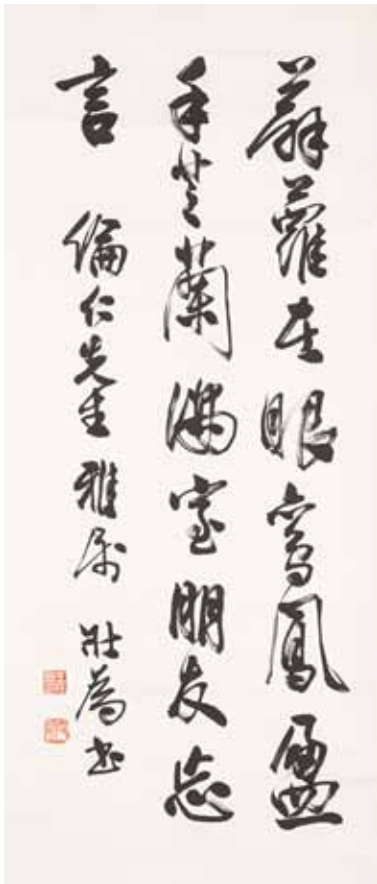 薜蘿在眼鸞鳳盈
手芝蘭滿室朋友忘
言 倫仁先生雅屬 壯為書